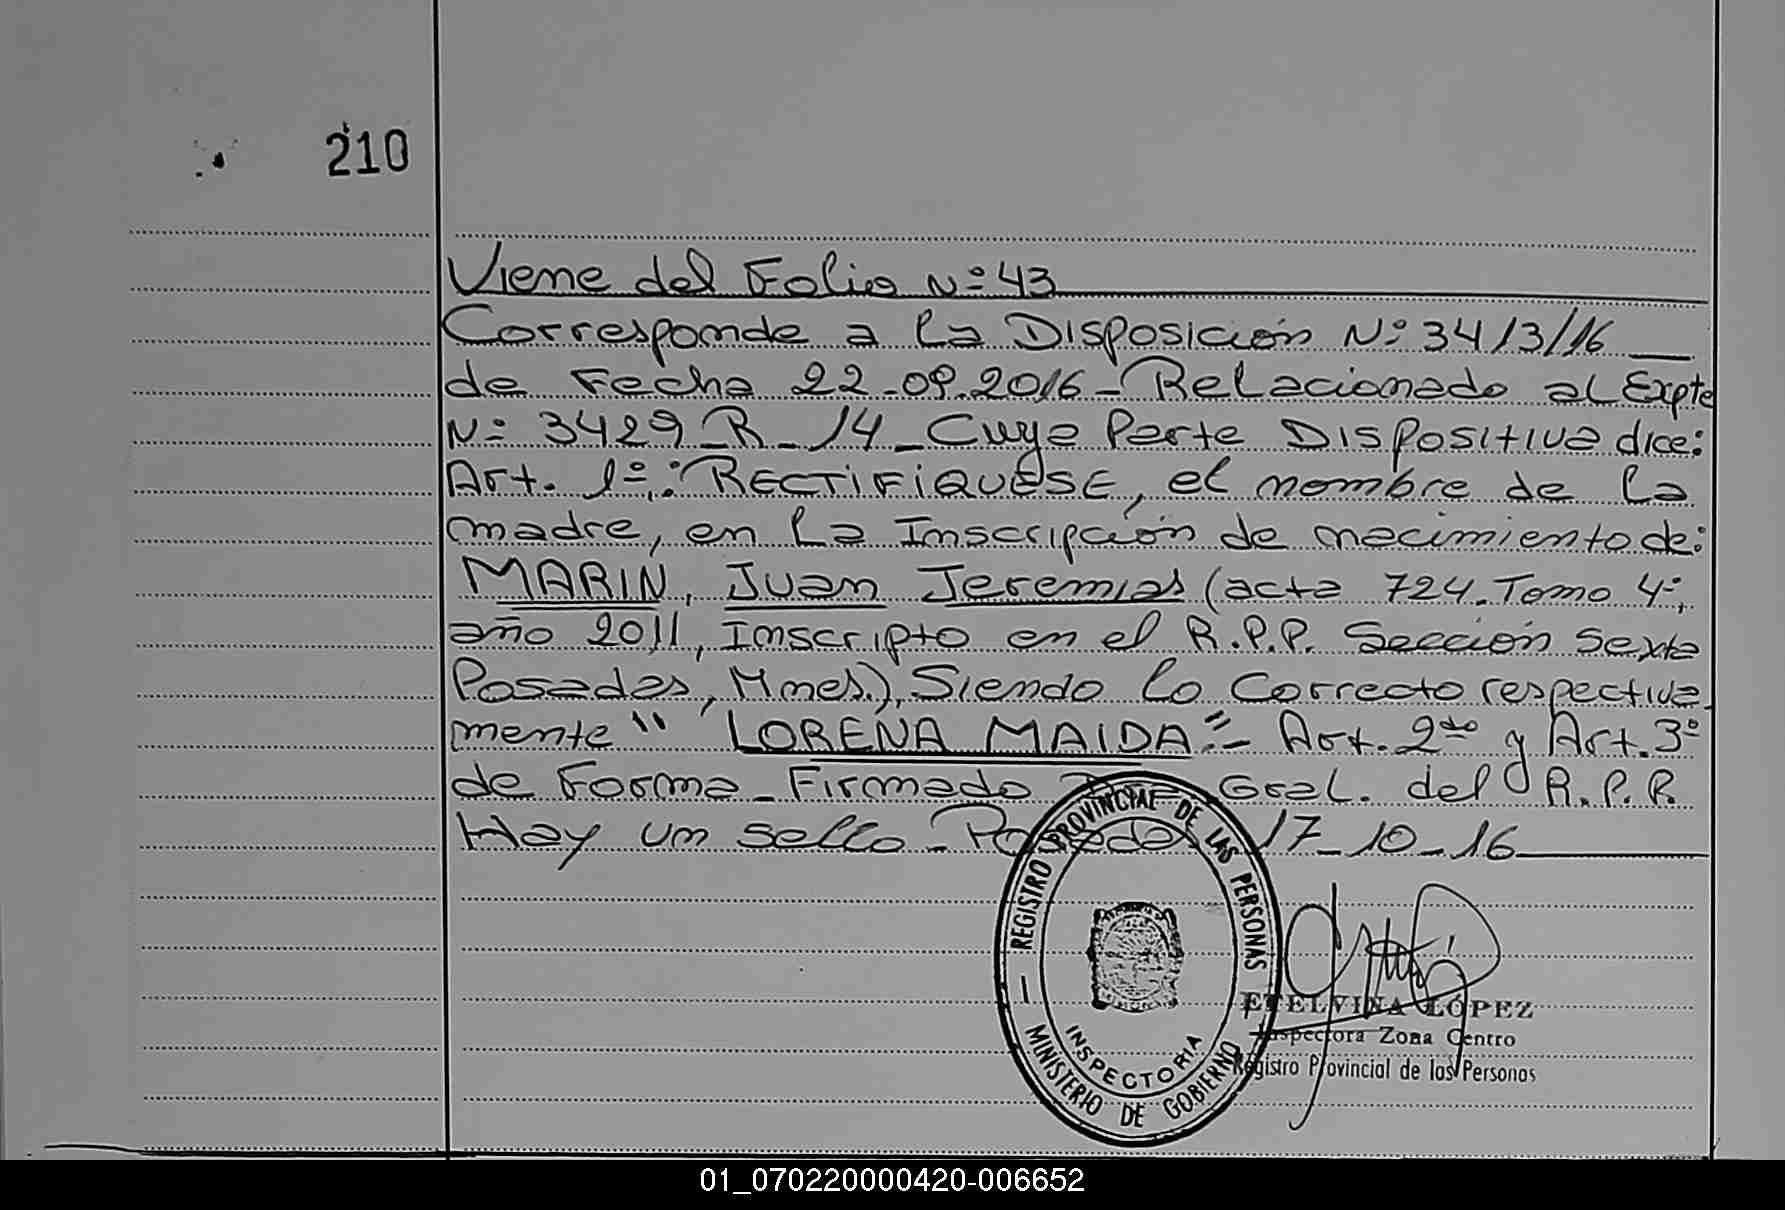 210
Viene del Folio Nº 43
Corresponde a la Disposición Nº 3413/16
de Fecha 22-09.2016 - Relacionado al Expte
Nº 3429-R-14- Cuya Parte Dispositiva dice:
Art. 1º: RECTIFIQUESE, el nombre de la
madre, en la Inscripción de nacimiento de:
MARIN, Juan Jeremias (acta 724. Tomo 4º,
año 2011, Inscripto en el R.P.P. Sección Sexta
Posadas, Mnes.), Siendo lo Correcto respectiva
mente " LORENA MAIDA".- Art. 2do y Art. 3º
de Forma - Firmado Gral. del R.P.R.
Hay un sello - Posadas 17-10-16
REGISTRO PROVINCIAL DE LAS PERSONAS
INSPECTORIA
MINISTERIO DE GOBIERNO
ETELVINA LÓPEZ
Inspectora Zona Centro
Registro Provincial de las Personas
01_070220000420-006652